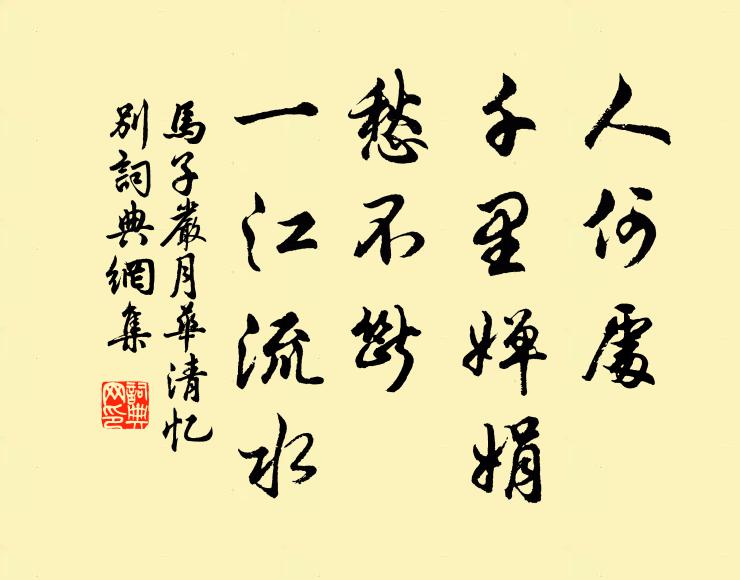 人何處
千里嬋娟
愁不斷
一江流水
馬子嚴月華清忆
別詞典網集
詞典
网印